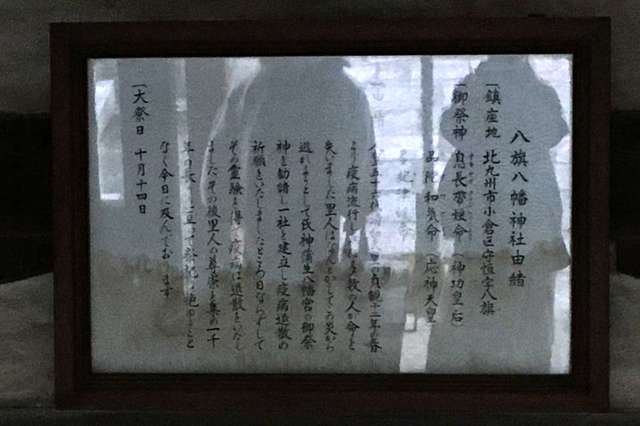 八旗八幡神社由緒
一鎮座地 北九州市小倉区守恒字八旗
一御祭神 息長帯姫命(神功皇后)
品陀和気命(応神天皇)
貞観十二年の春
より疫病流行し 多数の人が命を
失いました里人はなんとかしてこの災から
逃れようとして氏神蒲生八幡宮の御祭
神を勧請し一社を建立し疫病退散の
祈願をいたしましたところ日ならずして
その霊験を得て疫病は退散をいたし
ましたその後里人の尊崇を集め一千
年の
なく今日に及んでおります
一大祭日 十月十四日